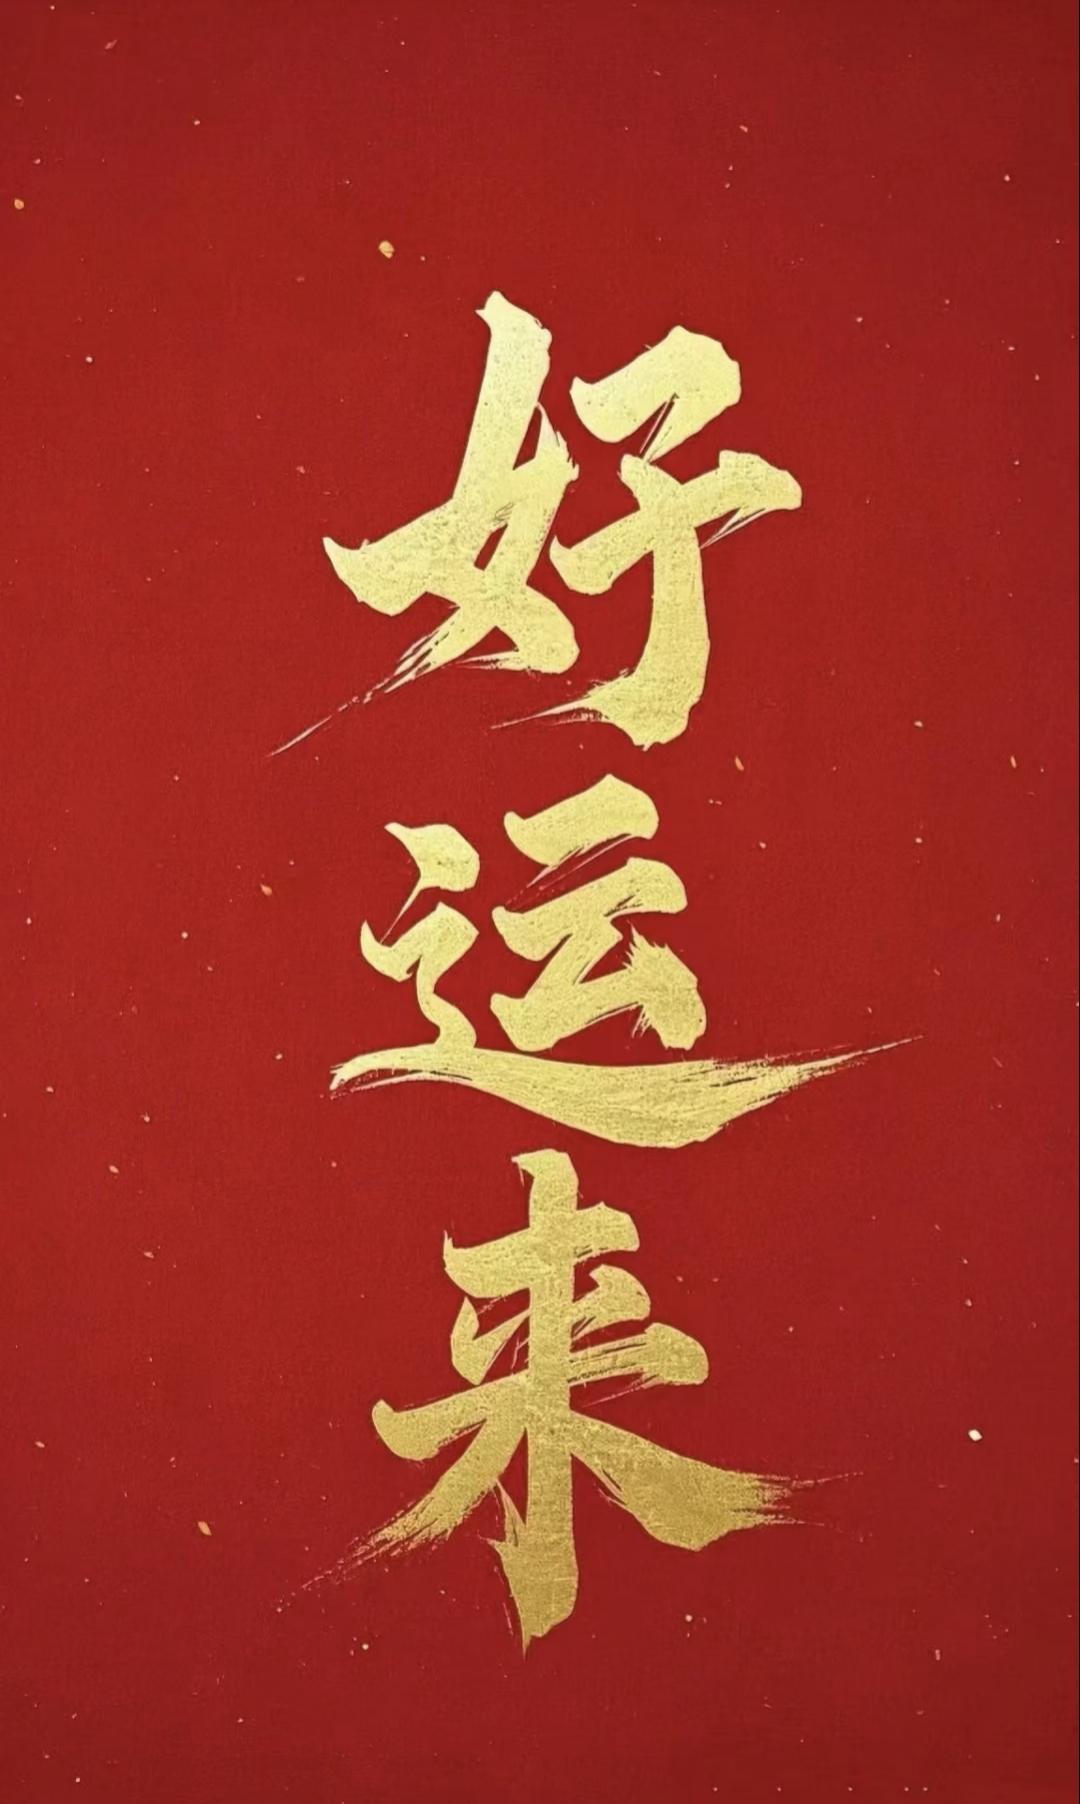 好运来